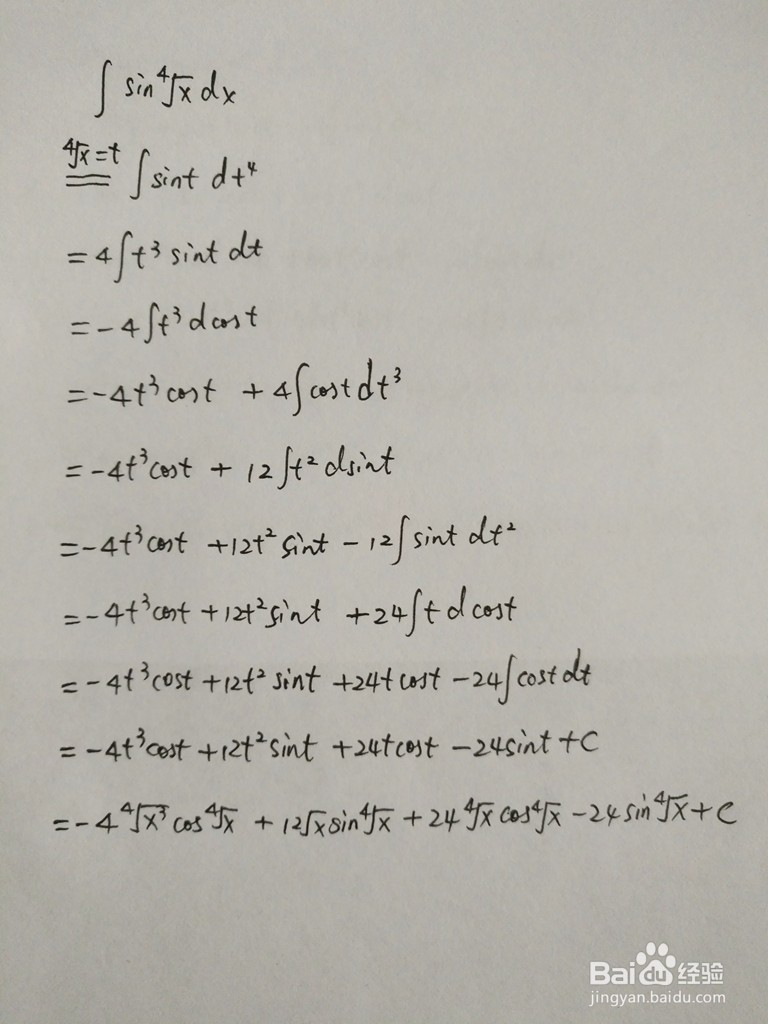 ∫ sin ⁴√x dx
⁴√x = t ∫ sint dt⁴
= 4∫t³ sint dt
= -4∫t³ d cost
= -4t³ cost + 4∫cost dt³
= -4t³cost + 12∫t² dsint
= -4t³cost +12t² sint - 12∫sint dt²
= -4t³cost +12t²sint +24∫t d cost
= -4t³cost +12t² sint +24t cost -24∫cost dt
= -4t³cost +12t²sint +24tcost -24sint +C
= -4 ⁴√x³ cos ⁴√x + 12√x sin ⁴√x + 24 ⁴√x cos ⁴√x - 24 sin ⁴√x + C
Bai du 经验
jingyan.baidu.com